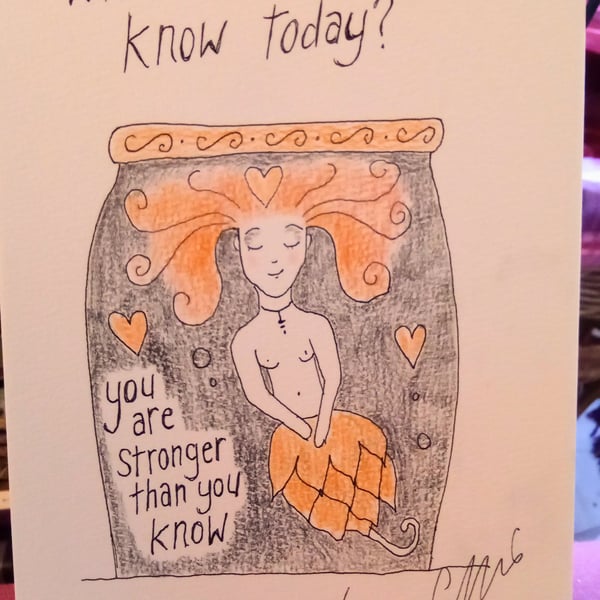 know today?
you
are
stronger
than you
know